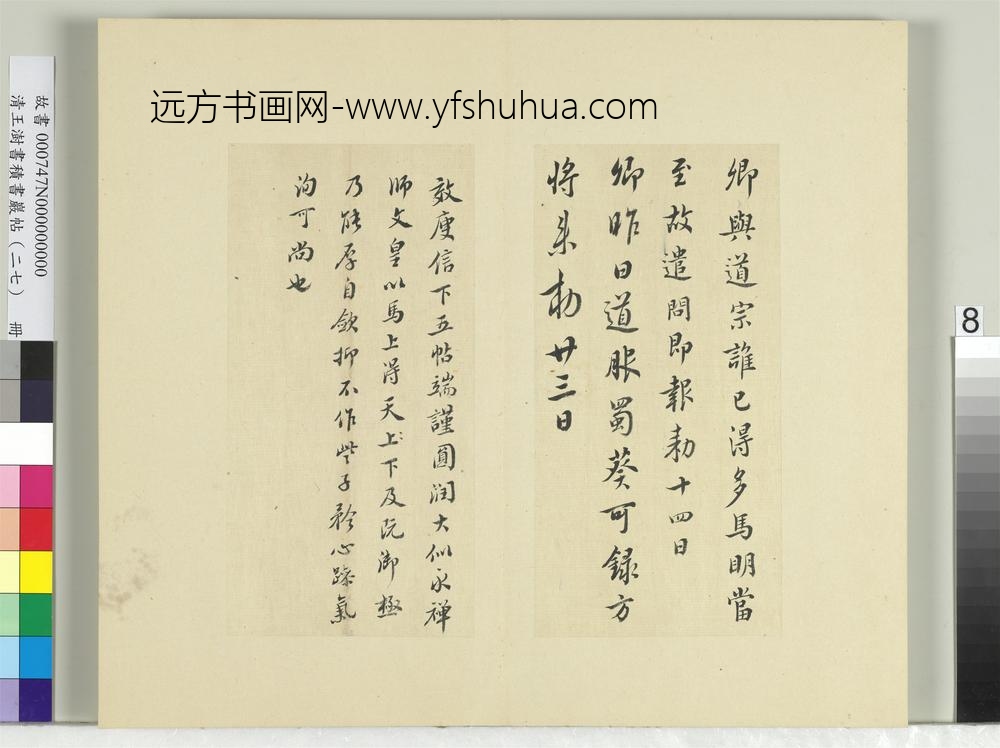 远方书画网-www.yfshuhua.com
卿與道宗誰已得多馬明當
至故遣問即報敕十四日
卿昨日道服蜀葵可錄方
將來敕廿三日
敦庾信下五帖端謹圓潤大似永禪
師文皇以馬上得天上下及既御極
乃能厚自斂抑不作些子矜心躁氣
洵可尚也
故書 000747N000000000
清王澍書積書巖帖(二七) 冊
8